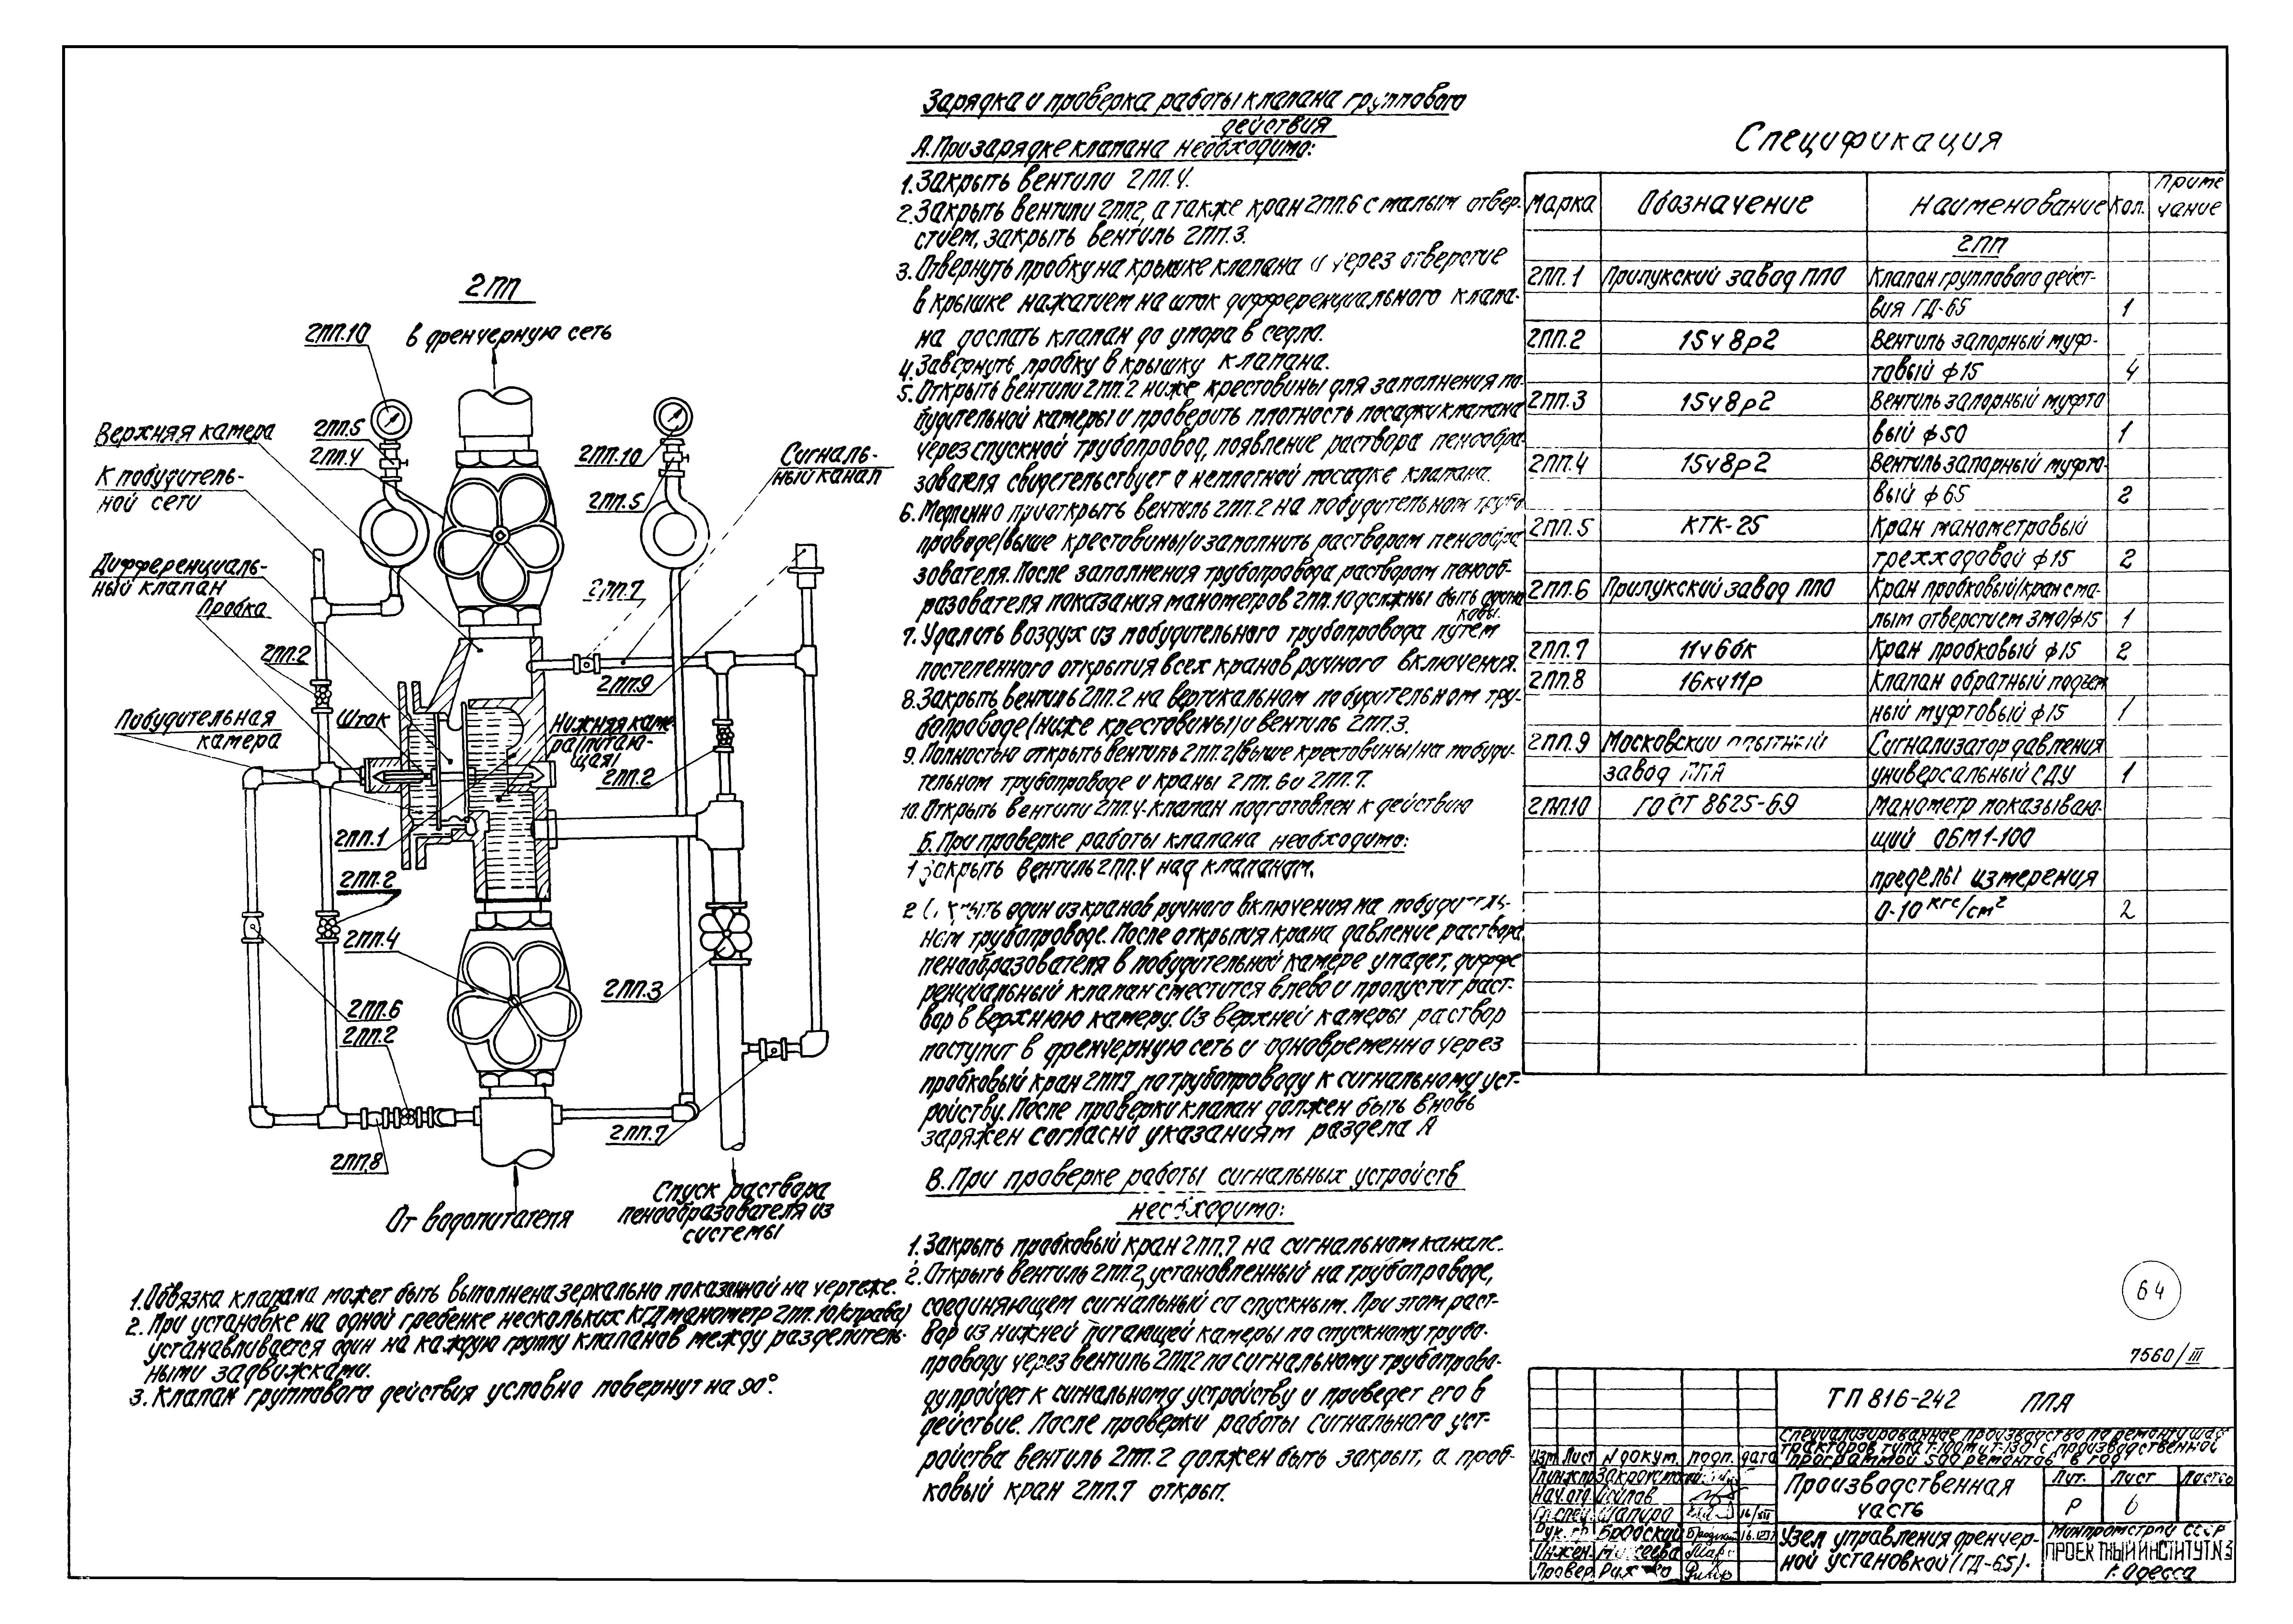 2ПП
в дренчерную сеть
2ПП.10
Верхняя камера
К побудитель-
ной сети
Дифференциаль-
ный клапан
Пробка
2ПП.5
2ПП.4
2ПП.10
2ПП.5
Сигналь-
ный канал
2ПП.7
2ПП.2
2ПП.9
Побудительная
камера
Шток
Нижняя каме-
ра (питаю-
щая)
2ПП.2
2ПП.1
2ПП.2
2ПП.4
2ПП.3
2ПП.6
2ПП.2
2ПП.7
2ПП.8
От водопитателя
Спуск раствора
пенообразователя из
системы
1. Обвязка клапана может быть выполнена зеркально показанной на чертеже.
2. При установке на одной гребенке нескольких КГД манометр 2ПП.10 (справа)
устанавливается один на каждую группу клапанов между разделитель-
ными задвижками.
3. Клапан группового действия условно повернут на 90°.
Зарядка и проверка работы клапана группового
действия
А. При зарядке клапана необходимо:
1. Закрыть вентили 2ПП.4.
2. Закрыть вентили 2ПП.2, а также кран 2ПП.6 с малым отвер-
стием, закрыть вентиль 2ПП.3.
3. Отвернуть пробку на крышке клапана и через отверстие
в крышке нажатием на шток дифференциального клапа-
на дослать клапан до упора в седло.
4. Завернуть пробку в крышку клапана.
5. Открыть вентили 2ПП.2 ниже крестовины для заполнения по-
будительной камеры и проверить плотность посадки клапана
через спускной трубопровод, появление раствора пенообра-
зователя свидетельствует о неплотной посадке клапана.
6. Медленно приоткрыть вентиль 2ПП.2 на побудительном трубо
проводе (выше крестовины) и заполнить раствором пенообра
зователя. После заполнения трубопровода раствором пенооб-
разователя показания манометров 2ПП.10 должны быть одина
ковы.
7. Удалить воздух из побудительного трубопровода путем
постепенного открытия всех кранов ручного включения.
8. Закрыть вентиль 2ПП.2 на вертикальном побудительном тру-
бопроводе (ниже крестовины) и вентиль 2ПП.3.
9. Полностью открыть вентиль 2ПП.2 (выше крестовины) на побуди-
тельном трубопроводе и краны 2ПП.6 и 2ПП.7.
10. Открыть вентили 2ПП.4-клапан подготовлен к действию
Б. При проверке работы клапана необходимо:
1 Закрыть вентиль 2ПП.4 над клапаном.
2 Открыть один из кранов ручного включения на побудитель-
ном трубопроводе. После открытия крана давление раствора
пенообразователя в побудительной камере упадет, диффе
ренциальный клапан сместится влево и пропустит раст-
вор в верхнюю камеру. Из верхней камеры раствор
поступит в дренчерную сеть и одновременно через
пробковый кран 2ПП7 по трубопроводу к сигнальному уст-
ройству. После проверки клапан должен быть вновь
заряжен согласно указаниям раздела А
В. При проверке работы сигнальных устройств
необходимо:
1. Закрыть пробковый кран 2ПП.7 на сигнальном канале.
2. Открыть вентиль 2ПП.2, установленный на трубопроводе,
соединяющем сигнальный со спускным. При этом раст-
вор из нижней питающей камеры по спускному трубо-
проводу через вентиль 2ПП2 по сигнальному трубопрово-
ду пройдет к сигнальному устройству и приведет его в
действие. После проверки работы сигнального уст-
ройства вентиль 2ПП.2 должен быть закрыт, а проб-
ковый кран 2ПП.7 открыт.
Спецификация
Марка Обозначение Наименование Кол. Приме
чание
2ПП
2ПП.1 Прилукский завод ППО Клапан группового дейст-
вия ГД-65 1
2ПП.2 15ч8р2 Вентиль запорный муф-
товый ф15 4
2ПП.3 15ч8р2 Вентиль запорный муфто
вый ф50 1
2ПП.4 15ч8р2 Вентиль запорный муфто-
вый ф65 2
2ПП.5 КТК-25 Кран манометровый
трехходовой ф15 2
2ПП.6 Прилукский завод ППО Кран пробковый/кран с ма-
лым отверстием 3мо/ф15 1
2ПП.7 11ч6бк Кран пробковый ф15 2
2ПП.8 16кч11р Клапан обратный подъем
ный муфтовый ф15 1
2ПП.9 Московский опытный Сигнализатор давления
завод ППА универсальный СДУ 1
2ПП10 ГОСТ 8625-69 Манометр показываю-
щий ОБМ1-100
пределы измерения
0-10 кгс/см² 2
64
7560/III
ТП 816-242 ППА
Специализированное производство по ремонту шас
тракторов типа Т-100м и Т-130 с производственной
программой 500 ремонтов в год
Изм Лист N докум. подп. дата
Гл.инж.пр
Нач.отд.
Гл.спец. Шапиро 16/XII
Рук.гр. Бродский
Инжен.
Провер
Производственная
часть
Лит. Лист Листов
Р 6
Узел управления дренчер-
ной установкой (ГД-65).
Минпромстрой СССР
ПРОЕКТНЫЙ ИНСТИТУТ N3
г. Одесса